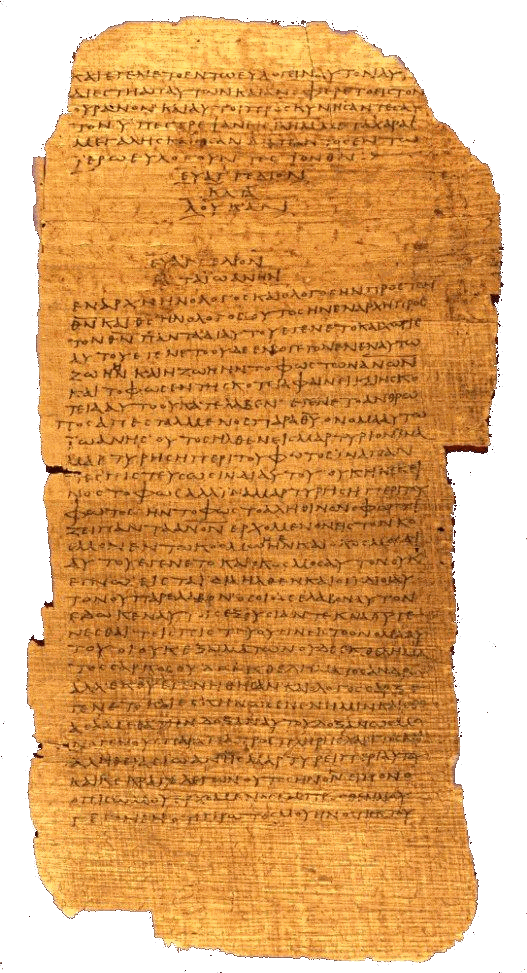 ΚΑΙ ΕΓΕΝΕΤΟ ΕΝ ΤΩ ΕΥΛΟΓΕΙΝ ΑΥΤΟΝ ΑΥ
ΔΙΕΣΤΗ ΑΠ ΑΥΤΩΝ ΚΑΙ ΑΝΕΦΕΡΕΤΟ ΕΙΣ ΤΟΝ
ΟΥΡΑΝΟΝ ΚΑΙ ΑΥΤΟΙ ΠΡΟΣΚΥΝΗΣΑΝΤΕΣ ΑΥ
ΤΟΝ ΥΠΕΣΤΡΕΨΑΝ ΕΙΣ ΙΛΗΜ ΜΕΤΑ ΧΑΡΑΣ
ΜΕΓΑΛΗΣ ΚΑΙ ΗΣΑΝ ΔΙΑ ΠΑΝΤΟΣ ΕΝ ΤΩ
ΙΕΡΩ ΕΥΛΟΓΟΥΝΤΕΣ ΤΟΝ ΘΝ
ΕΥΑΓΓΕΛΙΟΝ
ΚΑΤΑ
ΛΟΥΚΑΝ
ΕΥΑΓΓΕΛΙΟΝ
ΚΑΤΑ ΙΩΑΝΗΝ
ΕΝ ΑΡΧΗ ΗΝ Ο ΛΟΓΟΣ ΚΑΙ Ο ΛΟΓΟΣ ΗΝ ΠΡΟΣ ΤΟΝ
ΘΝ ΚΑΙ ΘΣ ΗΝ Ο ΛΟΓΟΣ ΟΥΤΟΣ ΗΝ ΕΝ ΑΡΧΗ ΠΡΟΣ
ΤΟΝ ΘΝ ΠΑΝΤΑ ΔΙ ΑΥΤΟΥ ΕΓΕΝΕΤΟ ΚΑΙ ΧΩΡΙΣ
ΑΥΤΟΥ ΕΓΕΝΕΤΟ ΟΥΔΕ ΕΝ Ο ΓΕΓΟΝΕΝ ΕΝ ΑΥΤΩ
ΖΩΗ ΗΝ ΚΑΙ Η ΖΩΗ ΗΝ ΤΟ ΦΩΣ ΤΩΝ ΑΝΩΝ
ΚΑΙ ΤΟ ΦΩΣ ΕΝ ΤΗ ΣΚΟΤΕΙΑ ΦΑΙΝΕΙ ΚΑΙ Η ΣΚΟ
ΤΕΙΑ ΑΥΤΟ ΟΥ ΚΑΤΕΛΑΒΕΝ ΕΓΕΝΕΤΟ ΑΝΘΡΩ
ΠΟΣ ΑΠΕΣΤΑΛΜΕΝΟΣ ΠΑΡΑ ΘΥ ΟΝΟΜΑ ΑΥΤΩ
ΙΩΑΝΗΣ ΟΥΤΟΣ ΗΛΘΕΝ ΕΙΣ ΜΑΡΤΥΡΙΑΝ ΙΝΑ
ΜΑΡΤΥΡΗΣΗ ΠΕΡΙ ΤΟΥ ΦΩΤΟΣ ΙΝΑ ΠΑΝ
ΤΕΣ ΠΙΣΤΕΥΣΩΣΙΝ ΔΙ ΑΥΤΟΥ ΟΥΚ ΗΝ ΕΚΕΙ
ΝΟΣ ΤΟ ΦΩΣ ΑΛΛ ΙΝΑ ΜΑΡΤΥΡΗΣΗ ΠΕΡΙ ΤΟΥ
ΦΩΤΟΣ ΗΝ ΤΟ ΦΩΣ ΤΟ ΑΛΗΘΙΝΟΝ Ο ΦΩΤΙ
ΖΕΙ ΠΑΝΤΑ ΑΝΟΝ ΕΡΧΟΜΕΝΟΝ ΕΙΣ ΤΟΝ ΚΟ
ΣΜΟΝ ΕΝ ΤΩ ΚΟΣΜΩ ΗΝ ΚΑΙ Ο ΚΟΣΜΟΣ ΔΙ
ΑΥΤΟΥ ΕΓΕΝΕΤΟ ΚΑΙ Ο ΚΟΣΜΟΣ ΑΥΤΟΝ ΟΥΚ
ΕΓΝΩ ΕΙΣ ΤΑ ΙΔΙΑ ΗΛΘΕΝ ΚΑΙ ΟΙ ΙΔΙΟΙ ΑΥ
ΤΟΝ ΟΥ ΠΑΡΕΛΑΒΟΝ ΟΣΟΙ ΔΕ ΕΛΑΒΟΝ ΑΥΤΟΝ
ΕΔΩΚΕΝ ΑΥΤΟΙΣ ΕΞΟΥΣΙΑΝ ΤΕΚΝΑ ΘΥ ΓΕ
ΝΕΣΘΑΙ ΤΟΙΣ ΠΙΣΤΕΥΟΥΣΙΝ ΕΙΣ ΤΟ ΟΝΟΜΑ ΑΥ
ΤΟΥ ΟΙ ΟΥΚ ΕΞ ΑΙΜΑΤΩΝ ΟΥΔΕ ΕΚ ΘΕΛΗΜΑ
ΤΟΣ ΣΑΡΚΟΣ ΟΥΔΕ ΕΚ ΘΕΛΗΜΑΤΟΣ ΑΝΔΡΟΣ
ΑΛΛ ΕΚ ΘΥ ΕΓΕΝΗΘΗΣΑΝ ΚΑΙ Ο ΛΟΓΟΣ ΣΑΡΞ Ε
ΓΕΝΕΤΟ ΚΑΙ ΕΣΚΗΝΩΣΕΝ ΕΝ ΗΜΙΝ ΚΑΙ ΕΘΕ
ΑΣΑΜΕΘΑ ΤΗΝ ΔΟΞΑΝ ΑΥΤΟΥ ΔΟΞΑΝ ΩΣ ΜΟ
ΝΟΓΕΝΟΥΣ ΠΑΡΑ ΠΑΤΡΟΣ ΠΛΗΡΗΣ ΧΑΡΙΤΟΣ ΚΑΙ
ΑΛΗΘΕΙΑΣ ΙΩΑΝΗΣ ΜΑΡΤΥΡΕΙ ΠΕΡΙ ΑΥΤΟΥ
ΚΑΙ ΚΕΚΡΑΓΕΝ ΛΕΓΩΝ ΟΥΤΟΣ ΗΝ ΟΝ ΕΙΠΟΝ Ο
ΟΠΙΣΩ ΜΟΥ ΕΡΧΟΜΕΝΟΣ ΕΜΠΡΟΣΘΕΝ ΜΟΥ
ΓΕΓΟΝΕΝ ΟΤΙ ΠΡΩΤΟΣ ΜΟΥ ΗΝ ΟΤΙ ΕΚ ΤΟΥ